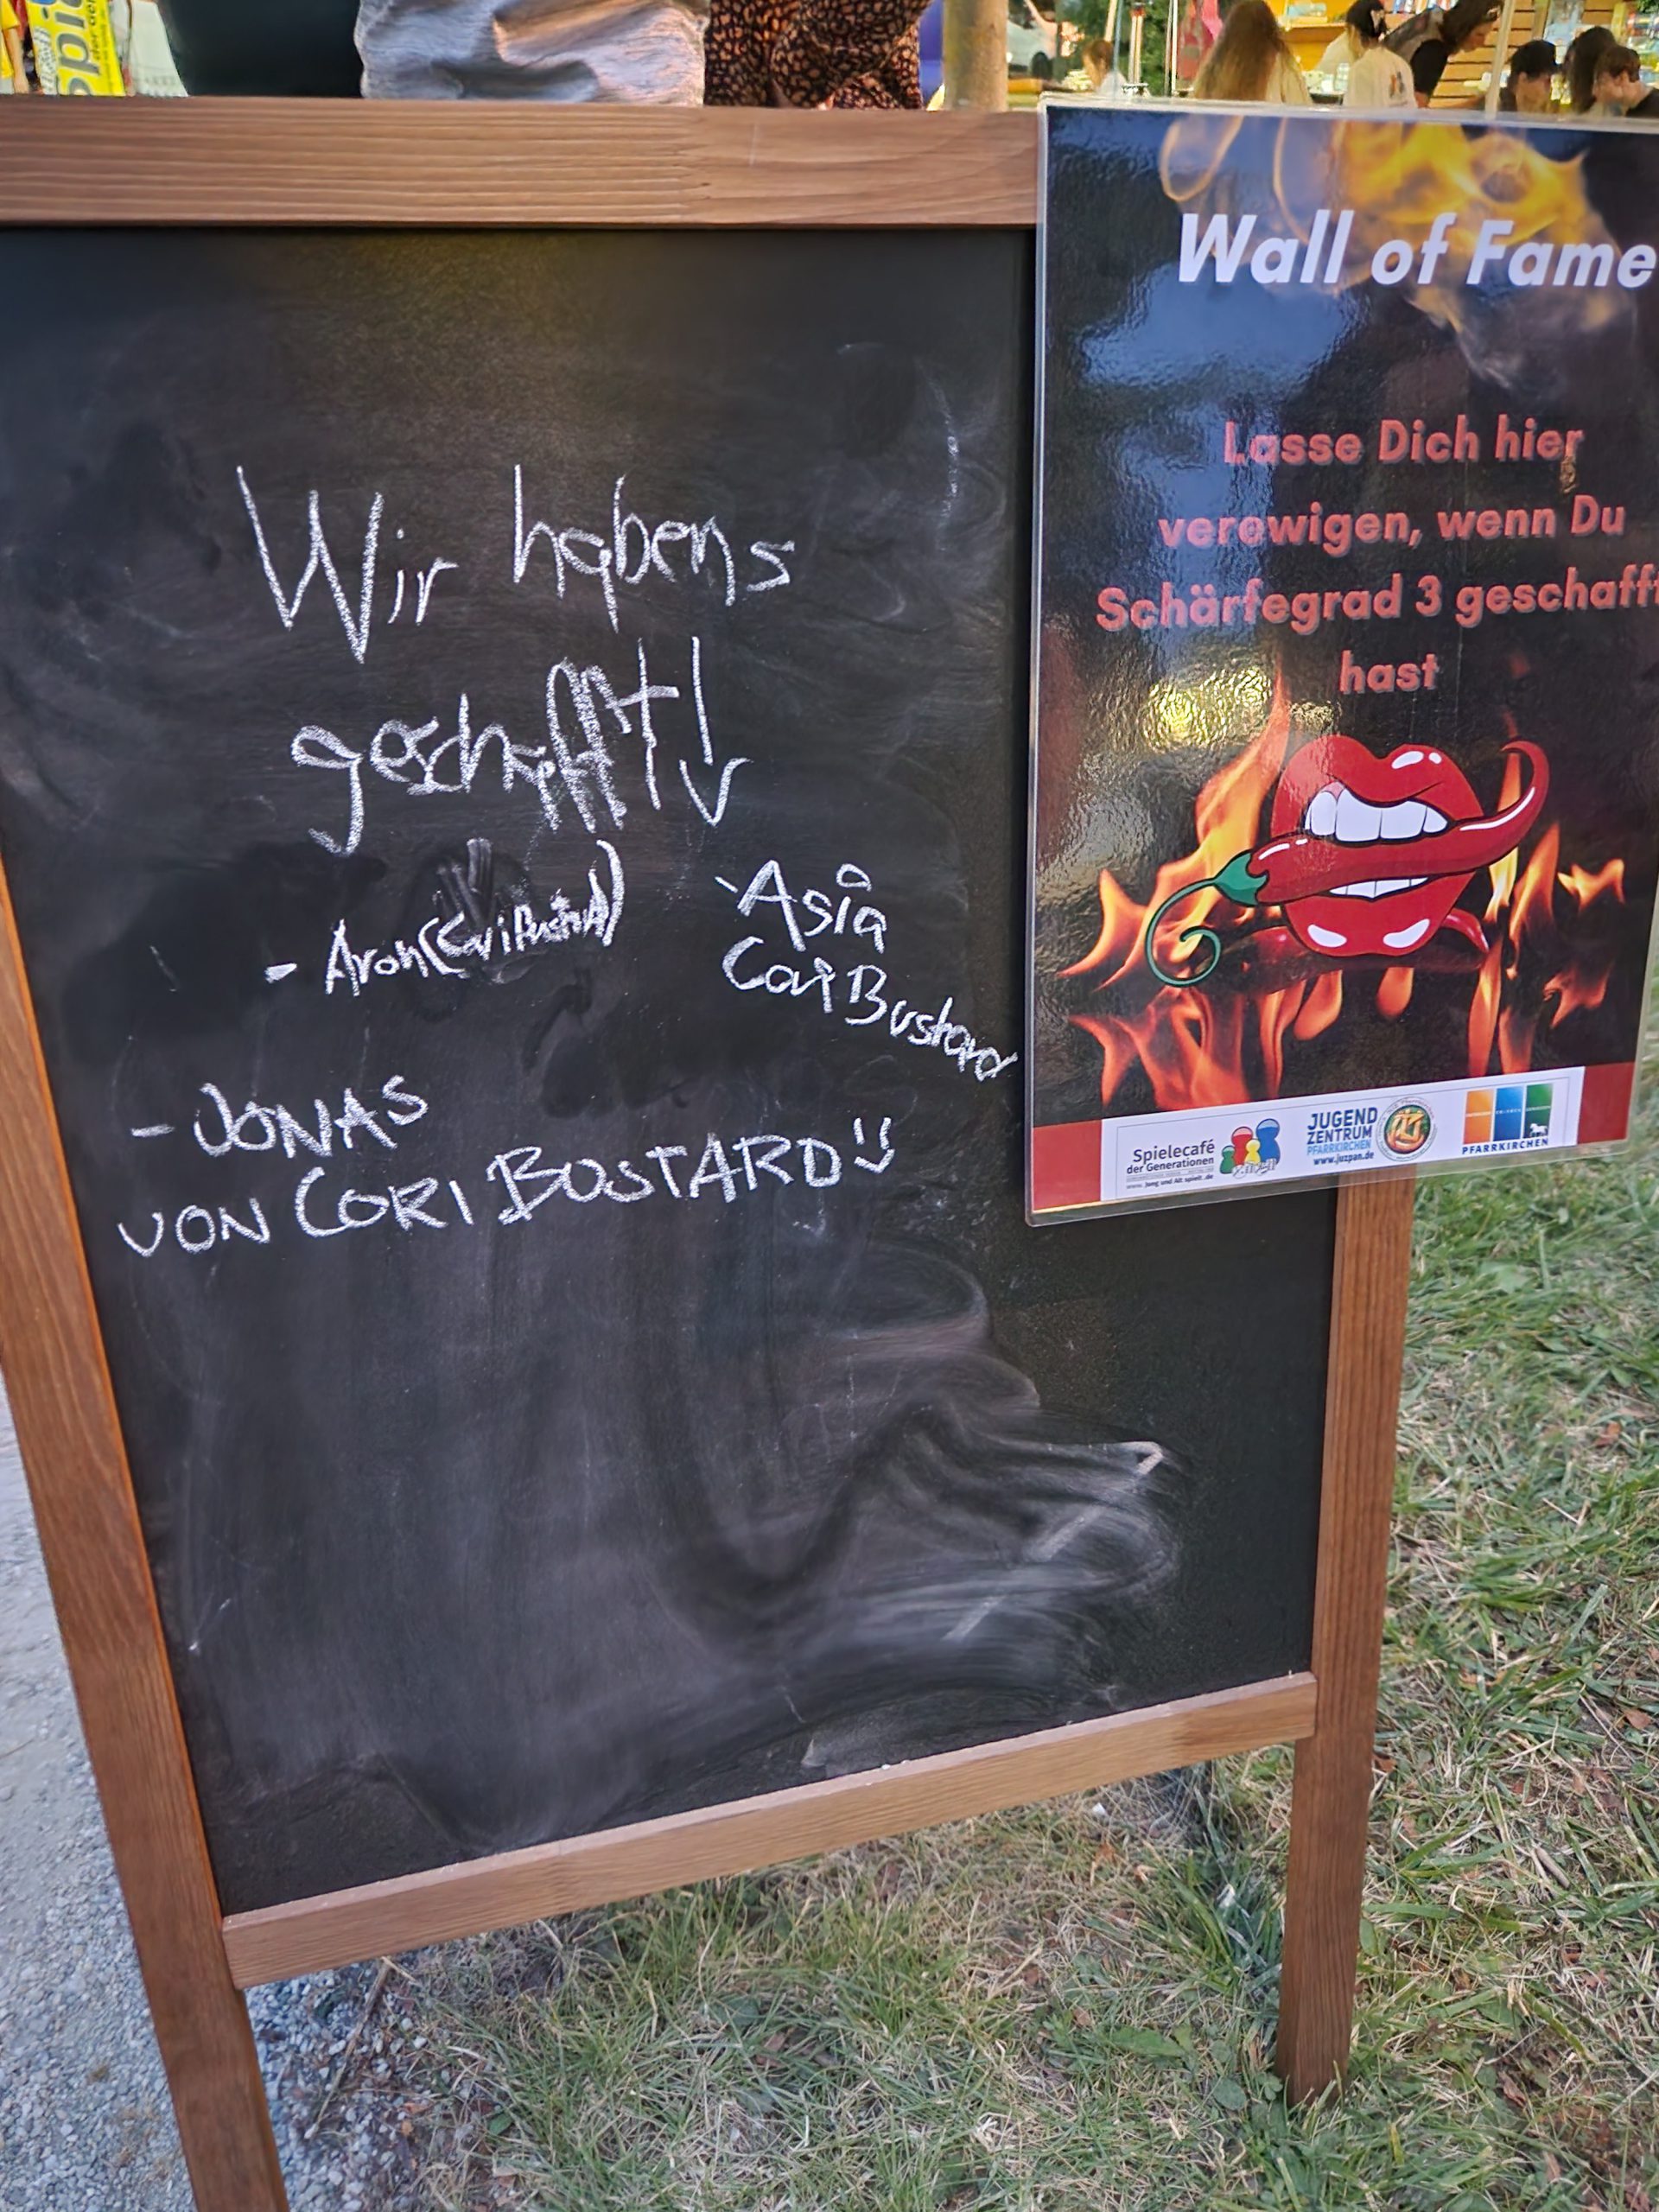 Wir habens
geschafft!
- Aron (Cori Bustard)
- Asia
Cori Bustard
- JONAS
VON CORI BUSTARD
Wall of Fame
Lasse Dich hier
verewigen, wenn Du
Schärfegrad 3 geschafft
hast
Spielecafé
der Generationen
www.Jung und Alt spielt.de
JUGEND
ZENTRUM
PFARRKIRCHEN
www.juzpan.de
PFARRKIRCHEN